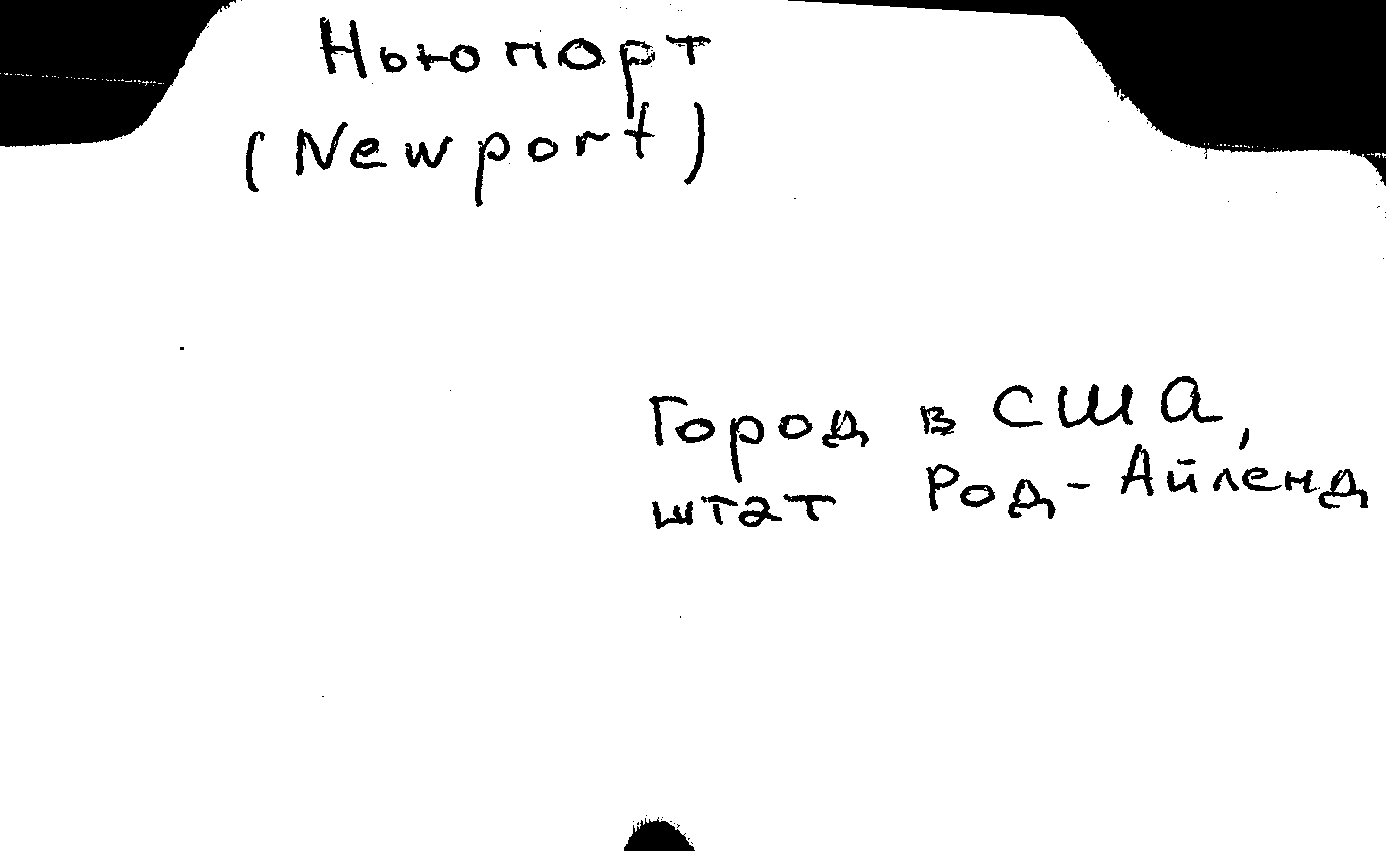 Ньюпорт
(Newport)
Город в США,
штат Род-Айленд